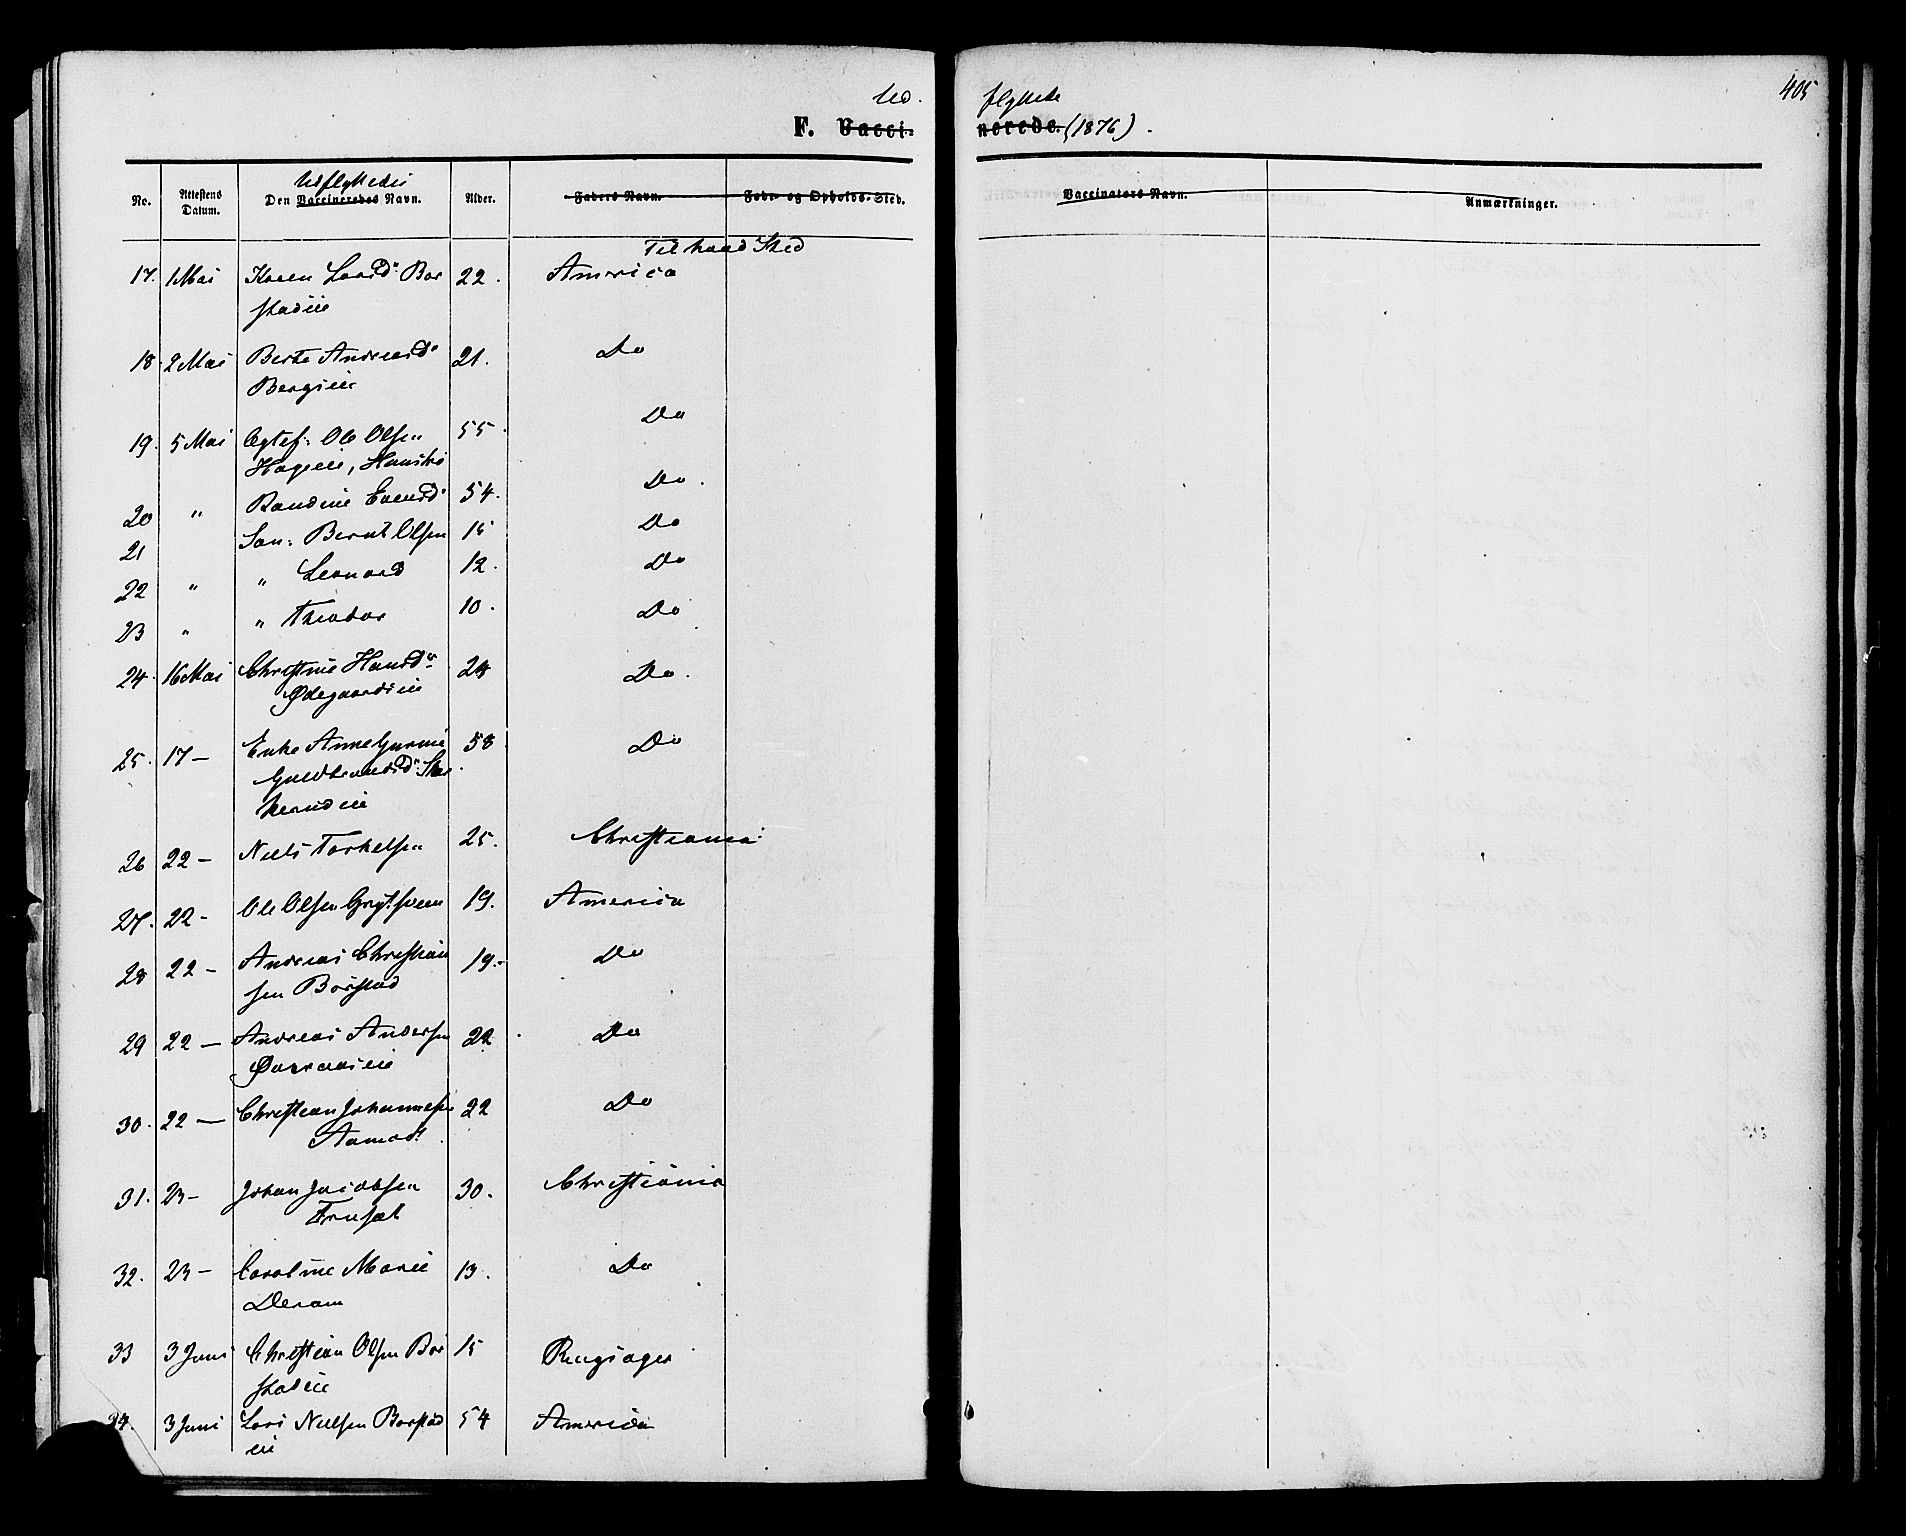 405
Ud. flyttede
F. Vacci- nerede. (1876).
No. Attestens Datum. Den Udflyttedes Vaccineredes Navn. Alder. Faders Navn. Føde- og Opholds-Sted. Vaccinators Navn. Anmærkninger.
Til hvad Sted
17. 1 Mai Karen Larsd. Bor 22. America
stadeie
18. 2 Mai Berte Andreasd. 21. Do
Bergseie
19. 5 Mai Egtef: Ole Olsen 55. Do
Hageeie, Hustru
20 " Randine Evensd. 54. Do.
21 Søn: Bernt Olsen 15 Do
22 " " Leonard 12. Do
23 " " Theodor 10. Do
24. 16 Mai Christine Hansd. 28 Do.
Ødegaardseie
25. 17 — Enke Anne Gurine 58 Do
Guldbrandsd.
26 22 — Niels Torkelsen 25. Christiania
27. 22 - Ole Olsen 19. America
28 22 — Andreas Christian 19. Do
sen Borstad
29 22 — Andreas Andersen 22 Do
30. 22 — Christian Johannesen 22 Do
31. 23 - Johan Jacobsen 30. Christiania
Fruset
32. 23 - Caroline Marie 13. Do
33 3 Juni Christian Olsen Bor 15 Ringsager
stadeie
34. 3 Juni Lars Nielsen Borstad 54 America
eie